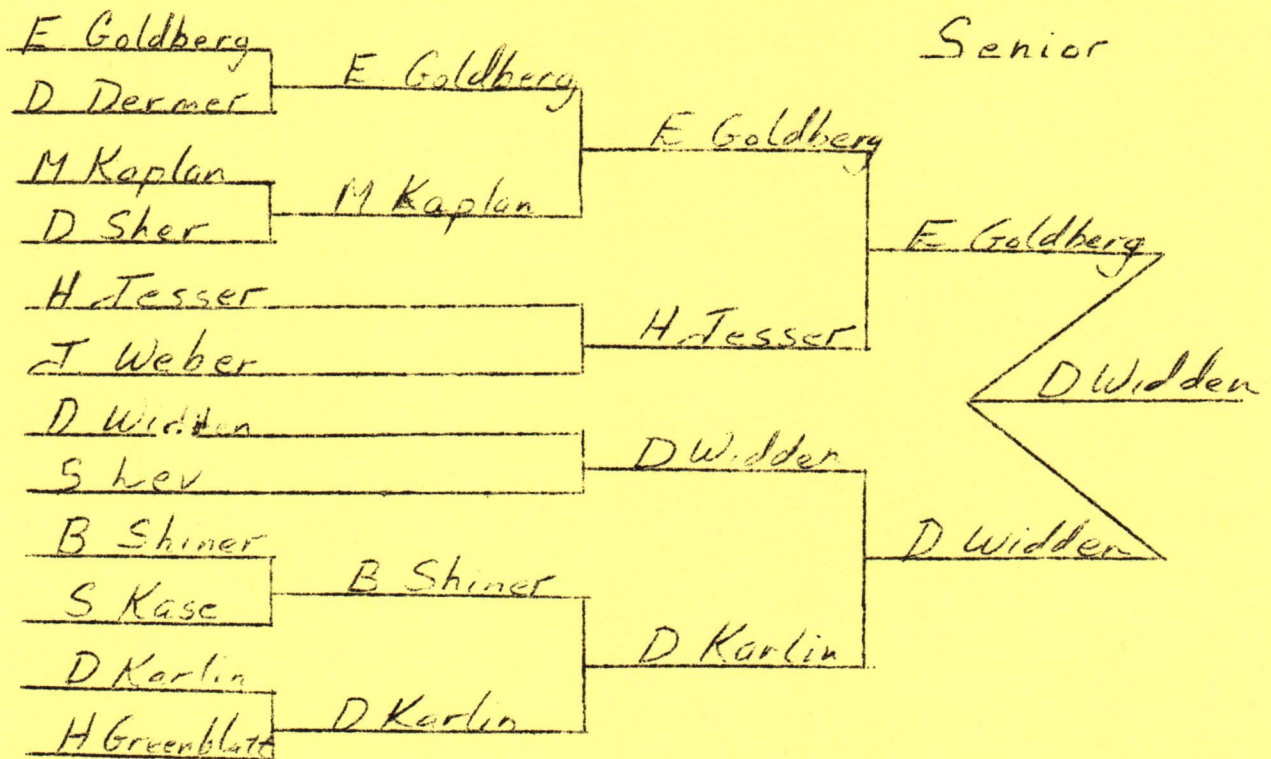 Senior
E Goldberg
D Dermer
M Kaplan
D Sher
H Tesser
J Weber
D Widden
S Lev
B Shiner
S Kase
D Karlin
H Greenblatt
E Goldberg
M Kaplan
B Shiner
D Karlin
E Goldberg
H Tesser
D Widden
D Karlin
E Goldberg
D Widden
D Widden